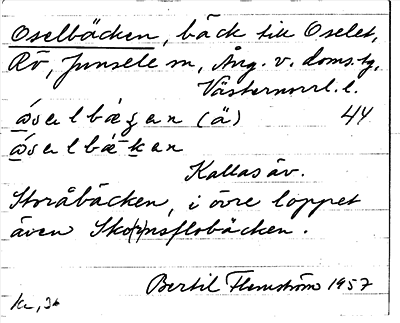 Oselbäcken, bäck till Oselet,
Rö, Junsele sn, Ång. v. doms.tg,
Västernorrl. l.
ⱥ́sɐlbɐ̀ʒɐn (ä) 44
ⱥ́sɐlbɐ̀kɐn
Kallas äv.
Storåbäcken, i övre loppet
även Sko(r)nsflobäcken.
Bertil Flemström 1957